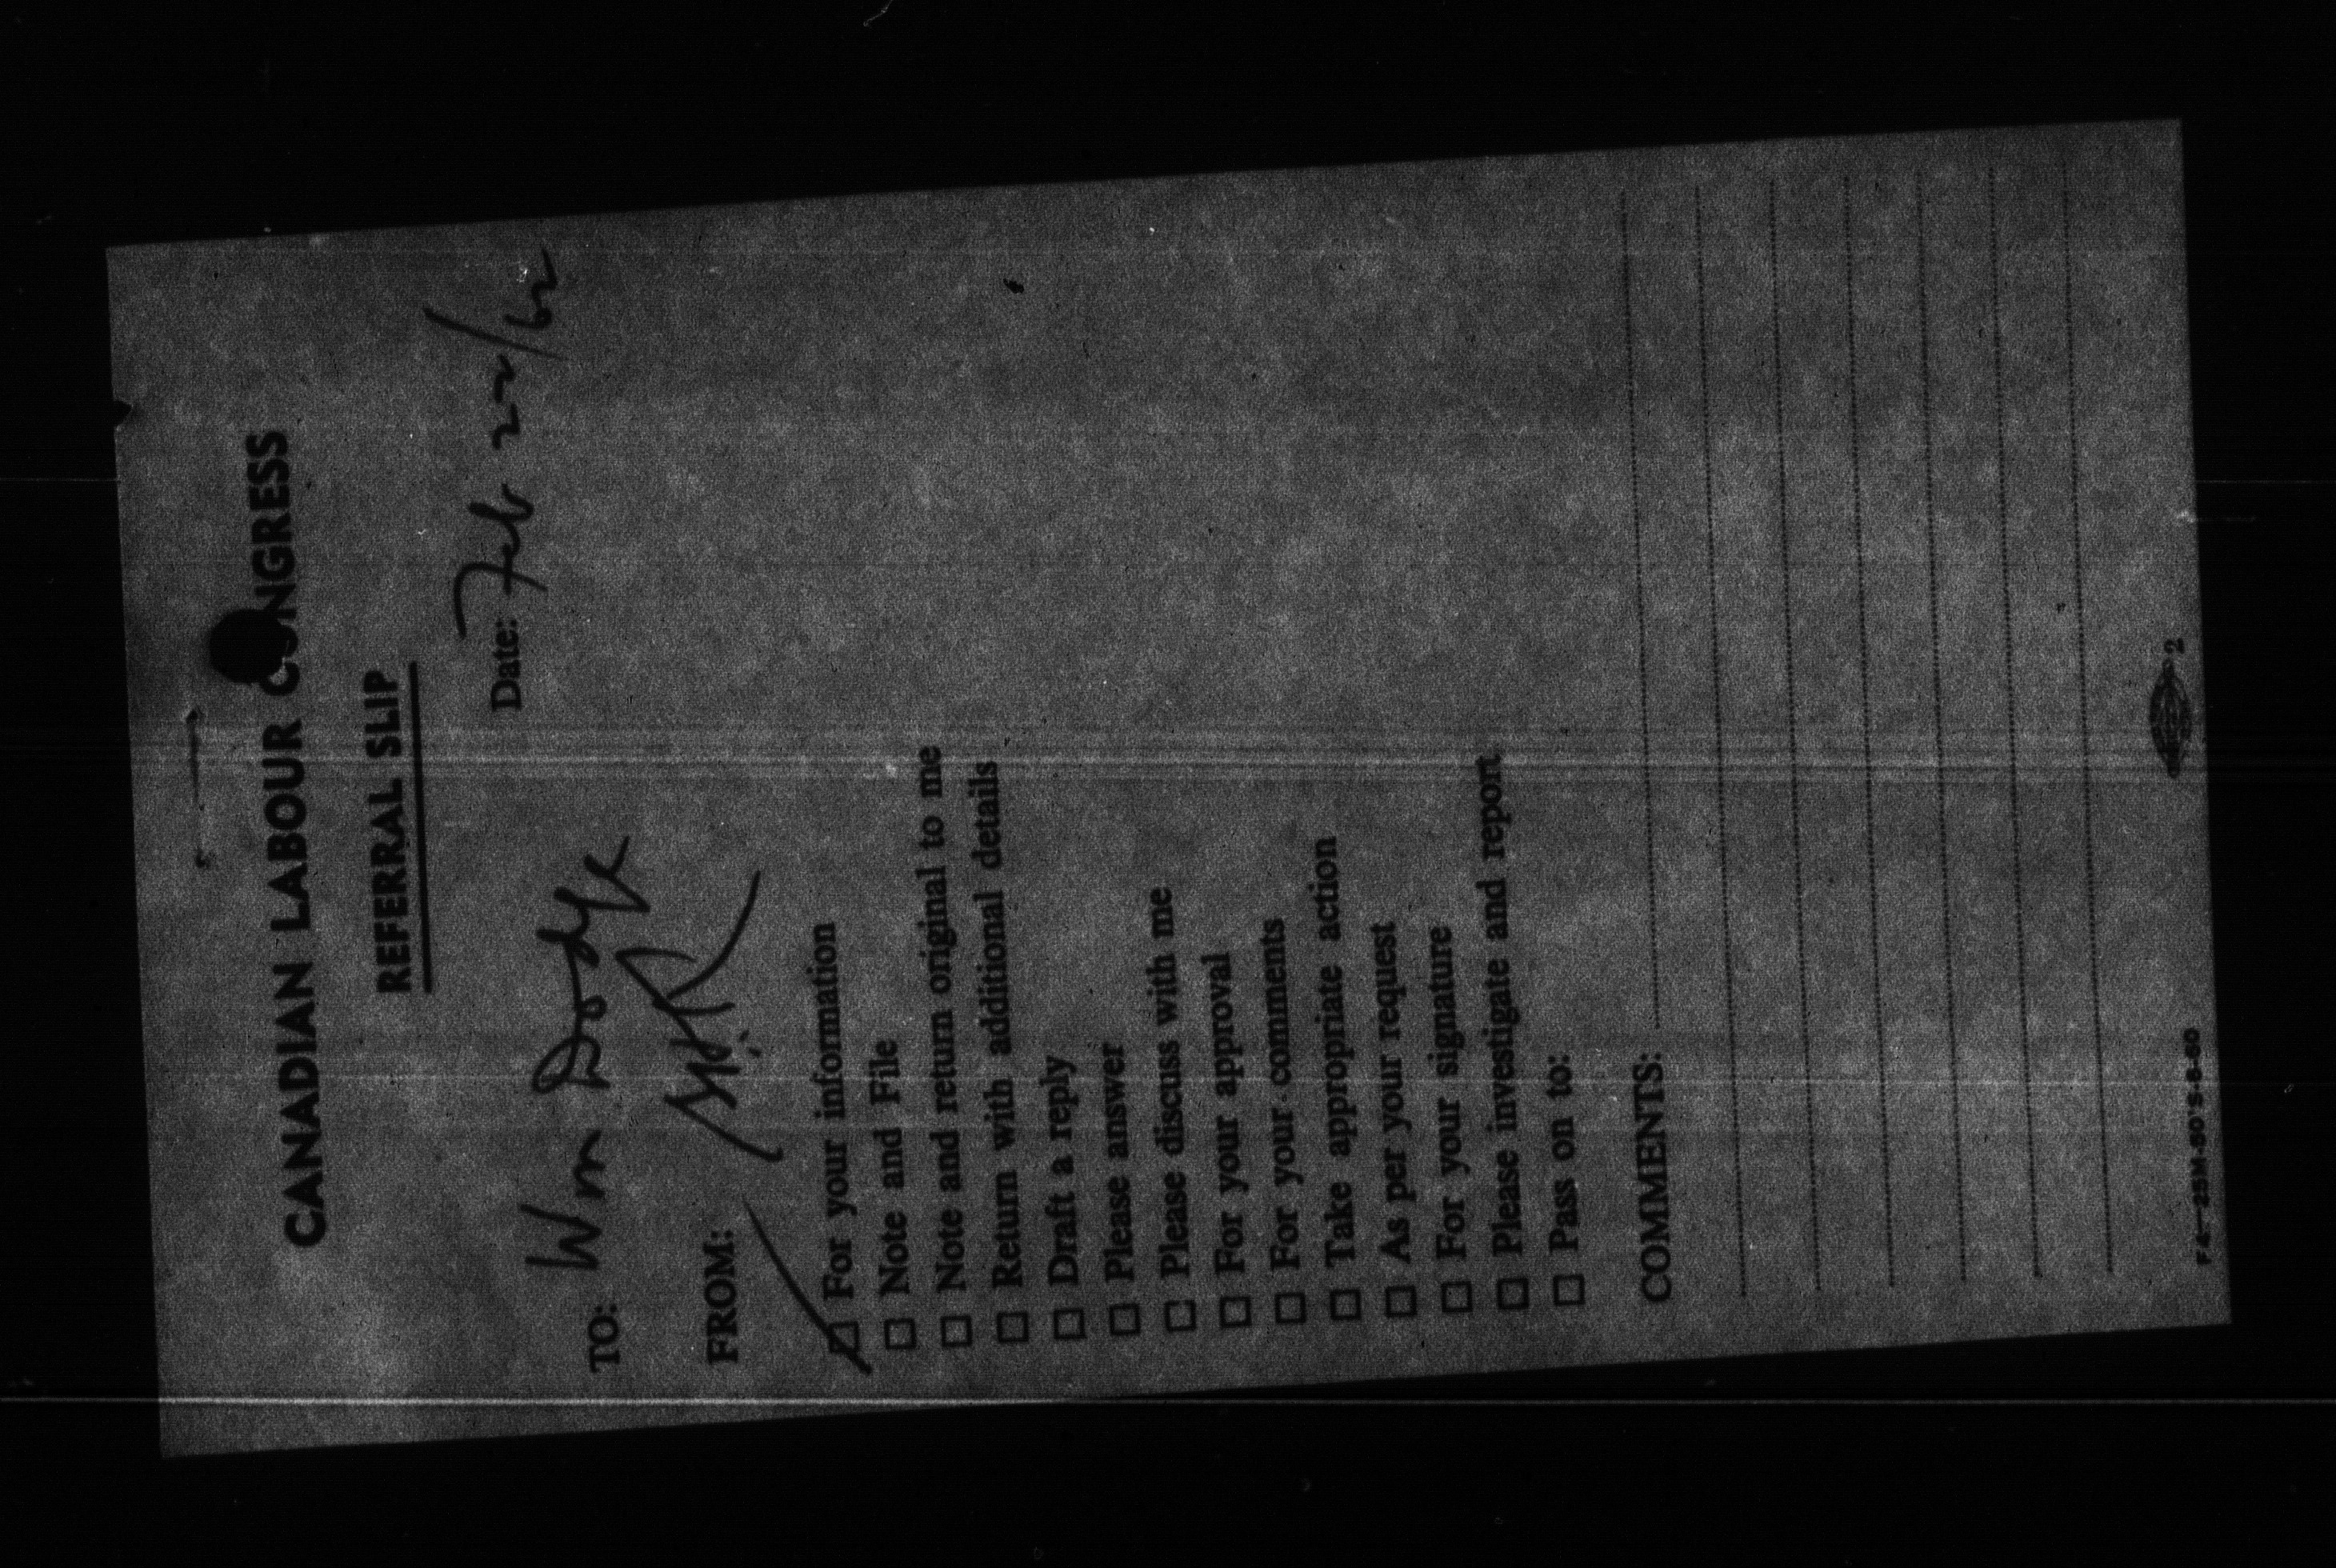 CANADIAN LABOUR CONGRESS
REFERRAL SLIP
Date: Feb 22/62
TO: Wm Dodge
FROM:
☑ For your information
☐ Note and File
☐ Note and return original to me
☐ Return with additional details
☐ Draft a reply
☐ Please answer
☐ Please discuss with me
☐ For your approval
☐ For your comments
☐ Take appropriate action
☐ As per your request
☐ For your signature
☐ Please investigate and report
☐ Pass on to:
COMMENTS:
2